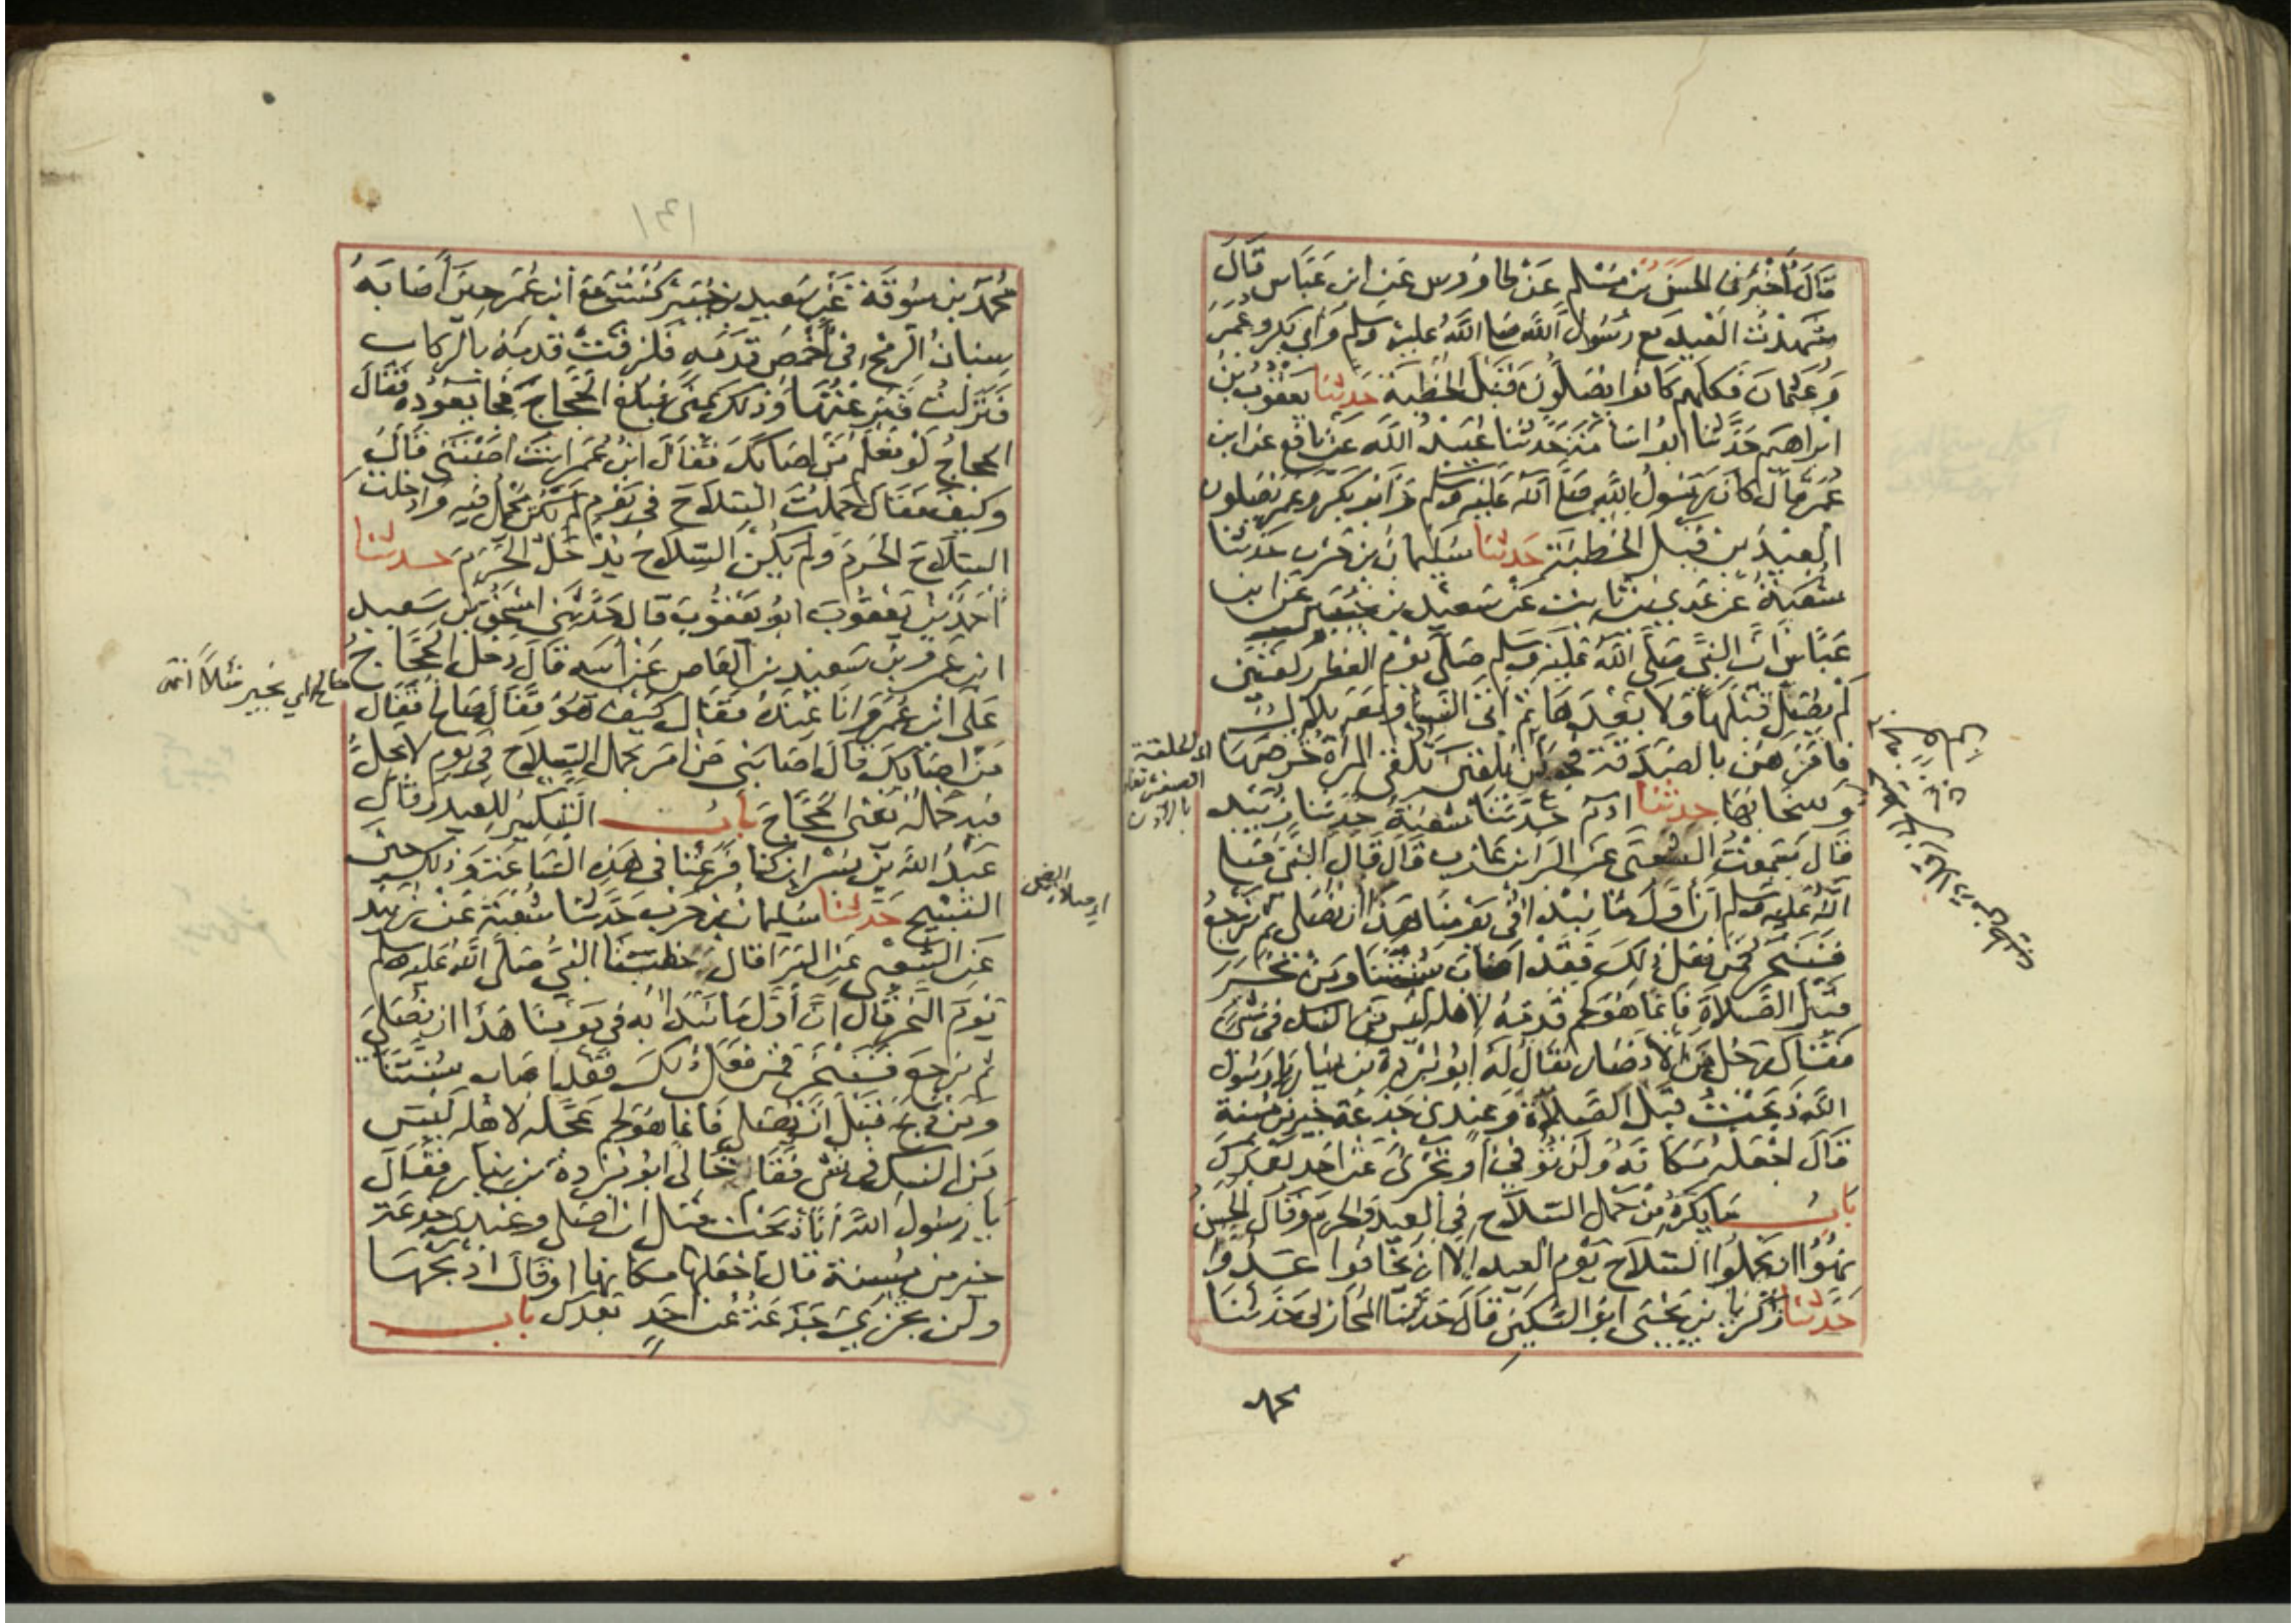 قَالَ أَخْبَرَنِي الحَسَنُ بْنُ مُسْلِمٍ عَنْ طَاوُوسٍ عَنِ ابْنِ عَبَّاسٍ قَالَ
شَهِدْتُ العِيدَ مَعَ رَسُولِ اللهِ صَلَّى اللهُ عَلَيْهِ وَسَلَّمَ وَأَبِي بَكْرٍ وَعُمَرَ
وَعُثْمَانَ فَكُلُّهُمْ كَانُوا يُصَلُّونَ قَبْلَ الخُطْبَةِ حَدَّثَنَا يَعْقُوبُ بْنُ
ابْرَاهِيمَ حَدَّثَنَا ابُو اسَامَةَ حَدَّثَنَا عُبَيْدُ اللهِ عَنْ نَافِعٍ عَنِ ابْنِ
عُمَرَ قَالَ كَانَ رَسُولُ اللهِ صَلَّى اللهُ عَلَيْهِ وَسَلَّمَ وَابُو بَكْرٍ وَعُمَرُ يُصَلُّونَ
العِيدَيْنِ قَبْلَ الخُطْبَةِ حَدَّثَنَا سُلَيْمَانُ بْنُ حَرْبٍ حَدَّثَنَا
شُعْبَةُ عَنْ عَدِيِّ بْنِ ثَابِتٍ عَنْ سَعِيدِ بْنِ جُبَيْرٍ عَنِ ابْنِ
عَبَّاسٍ انَّ النَّبِيَّ صَلَّى اللهُ عَلَيْهِ وَسَلَّمَ صَلَّى يَوْمَ الفِطْرِ رَكْعَتَيْنِ
لَمْ يُصَلِّ قَبْلَهَا وَلَا بَعْدَهَا ثُمَّ اتَى النِّسَاءَ وَمَعَهُ بِلَالٌ
فَامَرَهُنَّ بِالصَّدَقَةِ فَجَعَلْنَ يُلْقِينَ تُلْقِي المَرْأَةُ خُرْصَهَا
وَسِخَابَهَا حَدَّثَنَا ادَمُ حَدَّثَنَا شُعْبَةُ حَدَّثَنَا زُبَيْد
قَالَ سَمِعْتُ الشَّعْبِيَّ عَنِ البَرَاءِ بْنِ عَازِبٍ قَالَ قَالَ النَّبِيُّ صَلَّى
اللهُ عَلَيْهِ وَسَلَّمَ انَّ أَوَّلَ مَا نَبْدَأُ فِي يَوْمِنَا هَذَا انْ نُصَلِّيَ ثُمَّ نَرْجِعَ
فَنَنْحَرَ فَمَنْ فَعَلَ ذَلِكَ فَقَدْ اصَابَ سُنَّتَنَا وَمَنْ نَحَرَ
قَبْلَ الصَّلَاةِ فَانَّمَا هُوَ لَحْمٌ قَدَّمَهُ لِاهْلِهِ لَيْسَ مِنَ النُّسُكِ فِي شَيْءٍ
فَقَالَ رَجُلٌ مِنَ الانْصَارِ يُقَالُ لَهُ ابُو بُرْدَةَ بْنُ نِيَارٍ يَا رَسُولَ
اللهِ ذَبَحْتُ قَبْلَ الصَّلَاةِ وَعِنْدِي جَذَعَةٌ خَيْرٌ مِنْ مُسِنَّةٍ
قَالَ اجْعَلْهُ مَكَانَهُ وَلَنْ تُوْفِيَ اوْ تَجْزِيَ عَنْ احَدٍ بَعْدَكَ
بَابُ مَا يُكْرَهُ مِنْ حَمْلِ السِّلَاحِ فِي العِيدِ وَالحَرَمِ وَقَالَ الحَسَنُ
نُهُوا انْ يَحْمِلُوا السِّلَاحَ يَوْمَ العِيدِ الَّا انْ يَخَافُوا عَدُوًّا
حَدَّثَنَا زَكَرِيَّا بْنُ يَحْيَى ابُو السُّكَيْنِ قَالَ حَدَّثَنَا المُحَارِبِي حَدَّثَنَا
محمد
١٣١
مُحَمَّدُ بْنُ سُوقَةَ عَنْ سَعِيدِ بْنِ جُبَيْرٍ كُنْتُ مَعَ ابْنِ عُمَرَ حِينَ أَصَابَهُ
سِنَانُ الرُّمْحِ فِي أَخْمَصِ قَدَمِهِ فَلَزِقَتْ قَدَمُهُ بِالرِّكَابِ
فَنَزَلْتُ فَنَزَعْتُهَا وَذَلِكَ بِمِنًى فَبَلَغَ الحَجَّاجَ فَجَا يَعُودُهُ فَقَالَ
الحَجَّاجُ لَوْ نَعْلَمُ مَنْ اصَابَكَ فَقَالَ ابْنُ عُمَرَ انْتَ اصَبْتَنِي قَالَ
وَكَيْفَ فَقَالَ حَمَلْتَ السِّلَاحَ فِي يَوْمٍ لَمْ يَكُنْ يُحْمَلُ فِيهِ وَادْخَلْتَ
السِّلَاحَ الحَرَمَ وَلَمْ يَكُنِ السِّلَاحُ يُدْخَلُ الحَرَمَ حَدَّثَنَا
احْمَدُ بْنُ يَعْقُوبَ ابُو يَعْقُوبَ قَالَ حَدَّثَنِي اسْحَقُ بْنُ سَعِيدِ
ابْنِ عَمْرِو بْنِ سَعِيدِ بْنِ العَاصِ عَنْ أَبِيهِ قَالَ دَخَلَ الحَجَّاجُ
عَلَى ابْنِ عُمَرَ وَانَا عِنْدَهُ فَقَالَ كَيْفَ هُوَ فَقَالَ صَالِحٌ فَقَالَ
مَنْ اصَابَكَ قَالَ اصَابَنِي مَنْ امَرَ بِحَمْلِ السِّلَاحِ فِي يَوْمٍ لَا يَحِلُّ
فِيهِ حَمْلُهُ يَعْنِي الحَجَّاجَ بَابُ التَّبْكِيرِ لِلْعِيدِ وَقَالَ
عَبْدُ اللهِ بْنُ بُسْرٍ انْ كُنَّا فَرَغْنَا فِي هَذِهِ السَّاعَةِ وَذَلِكَ حِينَ
التَّسْبِيحِ حَدَّثَنَا سُلَيْمَانُ بْنُ حَرْبٍ حَدَّثَنَا شُعْبَةُ عَنْ زُبَيْدٍ
عَنِ الشَّعْبِيِّ عَنِ البَرَا قَالَ خَطَبَنَا النَّبِيُّ صَلَّى اللهُ عَلَيْهِ وَسَلَّمَ
يَوْمَ النَّحْرِ قَالَ انَّ أَوَّلَ مَا نَبْدَا بِهِ فِي يَوْمِنَا هَذَا انْ نُصَلِّيَ
ثُمَّ نَرْجِعَ فَنَنْحَرَ فَمَنْ فَعَلَ ذَلِكَ فَقَدْ اصَابَ سُنَّتَنَا
وَمَنْ ذَبَحَ قَبْلَ أَنْ يُصَلِّيَ فَانَّمَا هُوَ لَحْمٌ عَجَّلَهُ لِاهْلِهِ لَيْسَ
مِنَ النُّسُكِ فِي شَيْءٍ فَقَامَ خَالِي ابُو بُرْدَةَ بْنُ نِيَارٍ فَقَالَ
يَا رَسُولَ اللهِ أَنَا ذَبَحْتُ قَبْلَ انْ اصَلِّيَ وَعِنْدِي جَذَعَةٌ
خَيْرٌ مِنْ مُسِنَّةٍ قَالَ اجْعَلْهَا مَكَانَهَا اوْ قَالَ اذْبَحْهَا
وَلَنْ تَجْزِيَ جَذَعَةٌ عَنْ احَدٍ بَعْدَكَ بَابُ